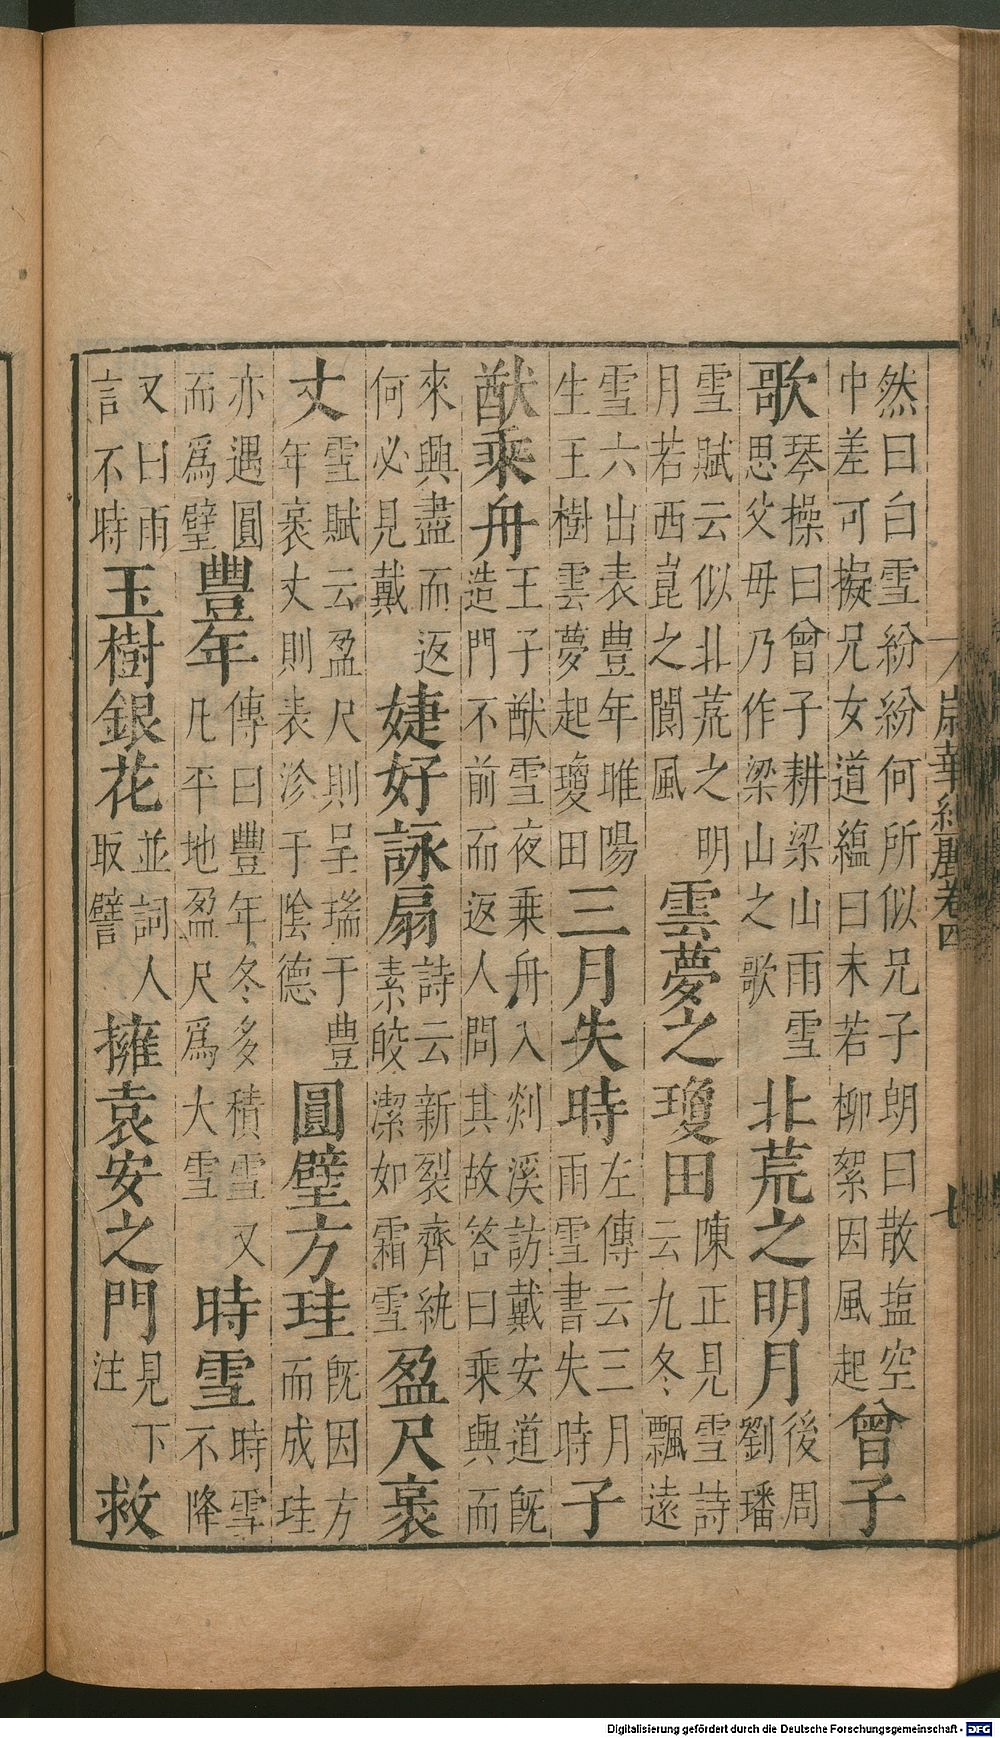 然曰白雪紛紛何所似兄子朗曰散塩空
中差可擬兄女道蘊曰未若柳絮因風起曾子
歌琴操曰曾子耕梁山雨雪
思父母乃作梁山之歌北荒之明月後周
劉璠
雪賦云似北荒之明
月若西崑之閬風雲夢之瓊田陳正見雪詩
云九冬飄遠
雪六出表豊年睢陽
生王樹雲夢起瓊田三月失時左傳云三月
雨雪書失時子
猷乘舟王子猷雪夜乗舟入剡溪訪戴安道旣
造門不前而返人問其故答曰乘興而
來興盡而返
何必見戴婕妤詠扇詩云新裂齊紈
素皎潔如霜雪盈尺袤
丈雪賦云盈尺則呈瑞于豊
年袤丈則表沴于陰德圓璧方珪旣因方
而成珪
亦遇圓
而爲璧豐年傳曰豐年冬多積雪又
凡平地盈尺爲大雪時雪時雪
不降
又曰雨
言不時玉樹銀花並詞人
取譬擁袁安之門見下
注救
歲華紀麗卷四
七
Digitalisierung gefördert durch die Deutsche Forschungsgemeinschaft - DFG